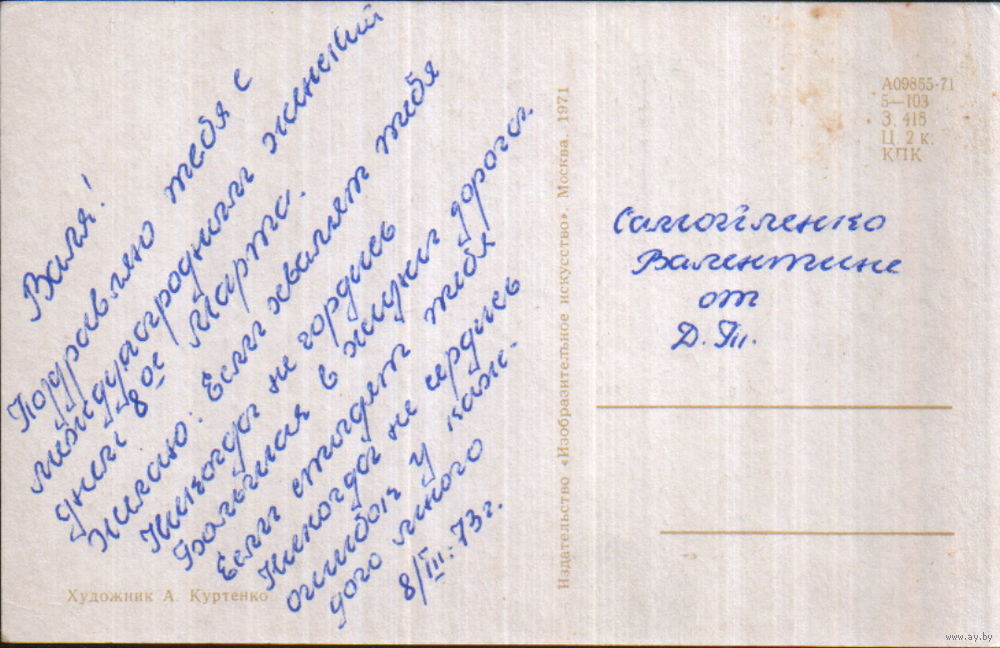 Валя!
Поздравляю тебя с
международным женский
днем 8ое Марта.
Желаю: Если хвалят тебя
Никогда не гордись
Большая в жизни дорога.
Если стыдят тебя
Никогда не сердись
ошибок у каж-
дого много
8/III.73г.
Художник А. Куртенко
Издательство «Изобразительное искусство». Москва. 1971
А09855-71
5—103
З. 418
Ц. 2 к.
КПК
Самойленко
Валентине
от
Д. Т.
www.ay.by